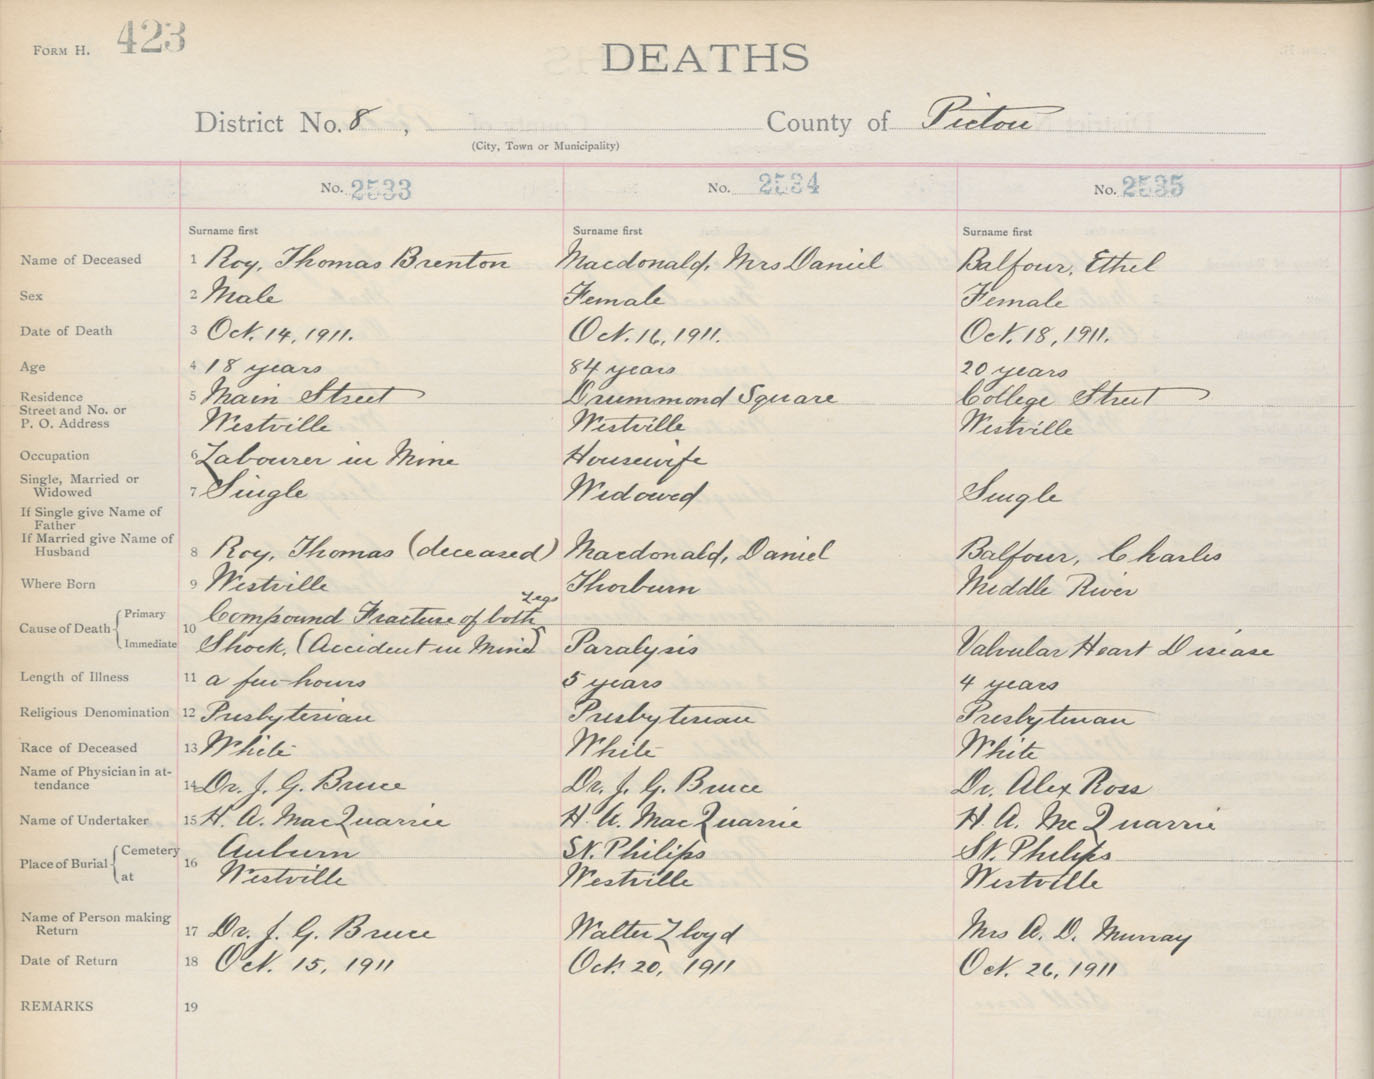 FORM H. 423
DEATHS
District No. 8, County of Pictou
(City, Town or Municipality)
No. 2533 No. 2534 No. 2535
Surname first Surname first Surname first
Name of Deceased 1 Roy, Thomas Brenton Macdonald, Mrs Daniel Balfour, Ethel
Sex 2 Male Female Female
Date of Death 3 Oct. 14, 1911. Oct. 16, 1911. Oct. 18, 1911.
Age 4 18 years 84 years 20 years
Residence 5 Main Street Drummond Square College Street
Street and No. or
P. O. Address Westville Westville Westville
Occupation 6 Labourer in Mine Housewife
Single, Married or
Widowed 7 Single Widowed Single
If Single give Name of
Father
If Married give Name of
Husband 8 Roy, Thomas (deceased) Macdonald, Daniel Balfour, Charles
Where Born 9 Westville Thorburn Middle River
Cause of Death 10 Primary Compound Fracture of both Legs
Immediate Shock. (Accident in Mine) Paralysis Valvular Heart Disease
Length of Illness 11 a few hours 5 years 4 years
Religious Denomination 12 Presbyterian Presbyterian Presbyterian
Race of Deceased 13 White White White
Name of Physician in at-
tendance 14 Dr. J. G. Bruce Dr. J. G. Bruce Dr. Alex Ross
Name of Undertaker 15 H. A. MacQuarrie H. A. MacQuarrie H. A. McQuarrie
Place of Burial 16 Cemetery Auburn St. Philips St. Philips
at Westville Westville Westville
Name of Person making
Return 17 Dr. J. G. Bruce Walter Lloyd Mrs A. D. Murray
Date of Return 18 Oct. 15, 1911 Oct. 20, 1911 Oct. 26, 1911
REMARKS 19